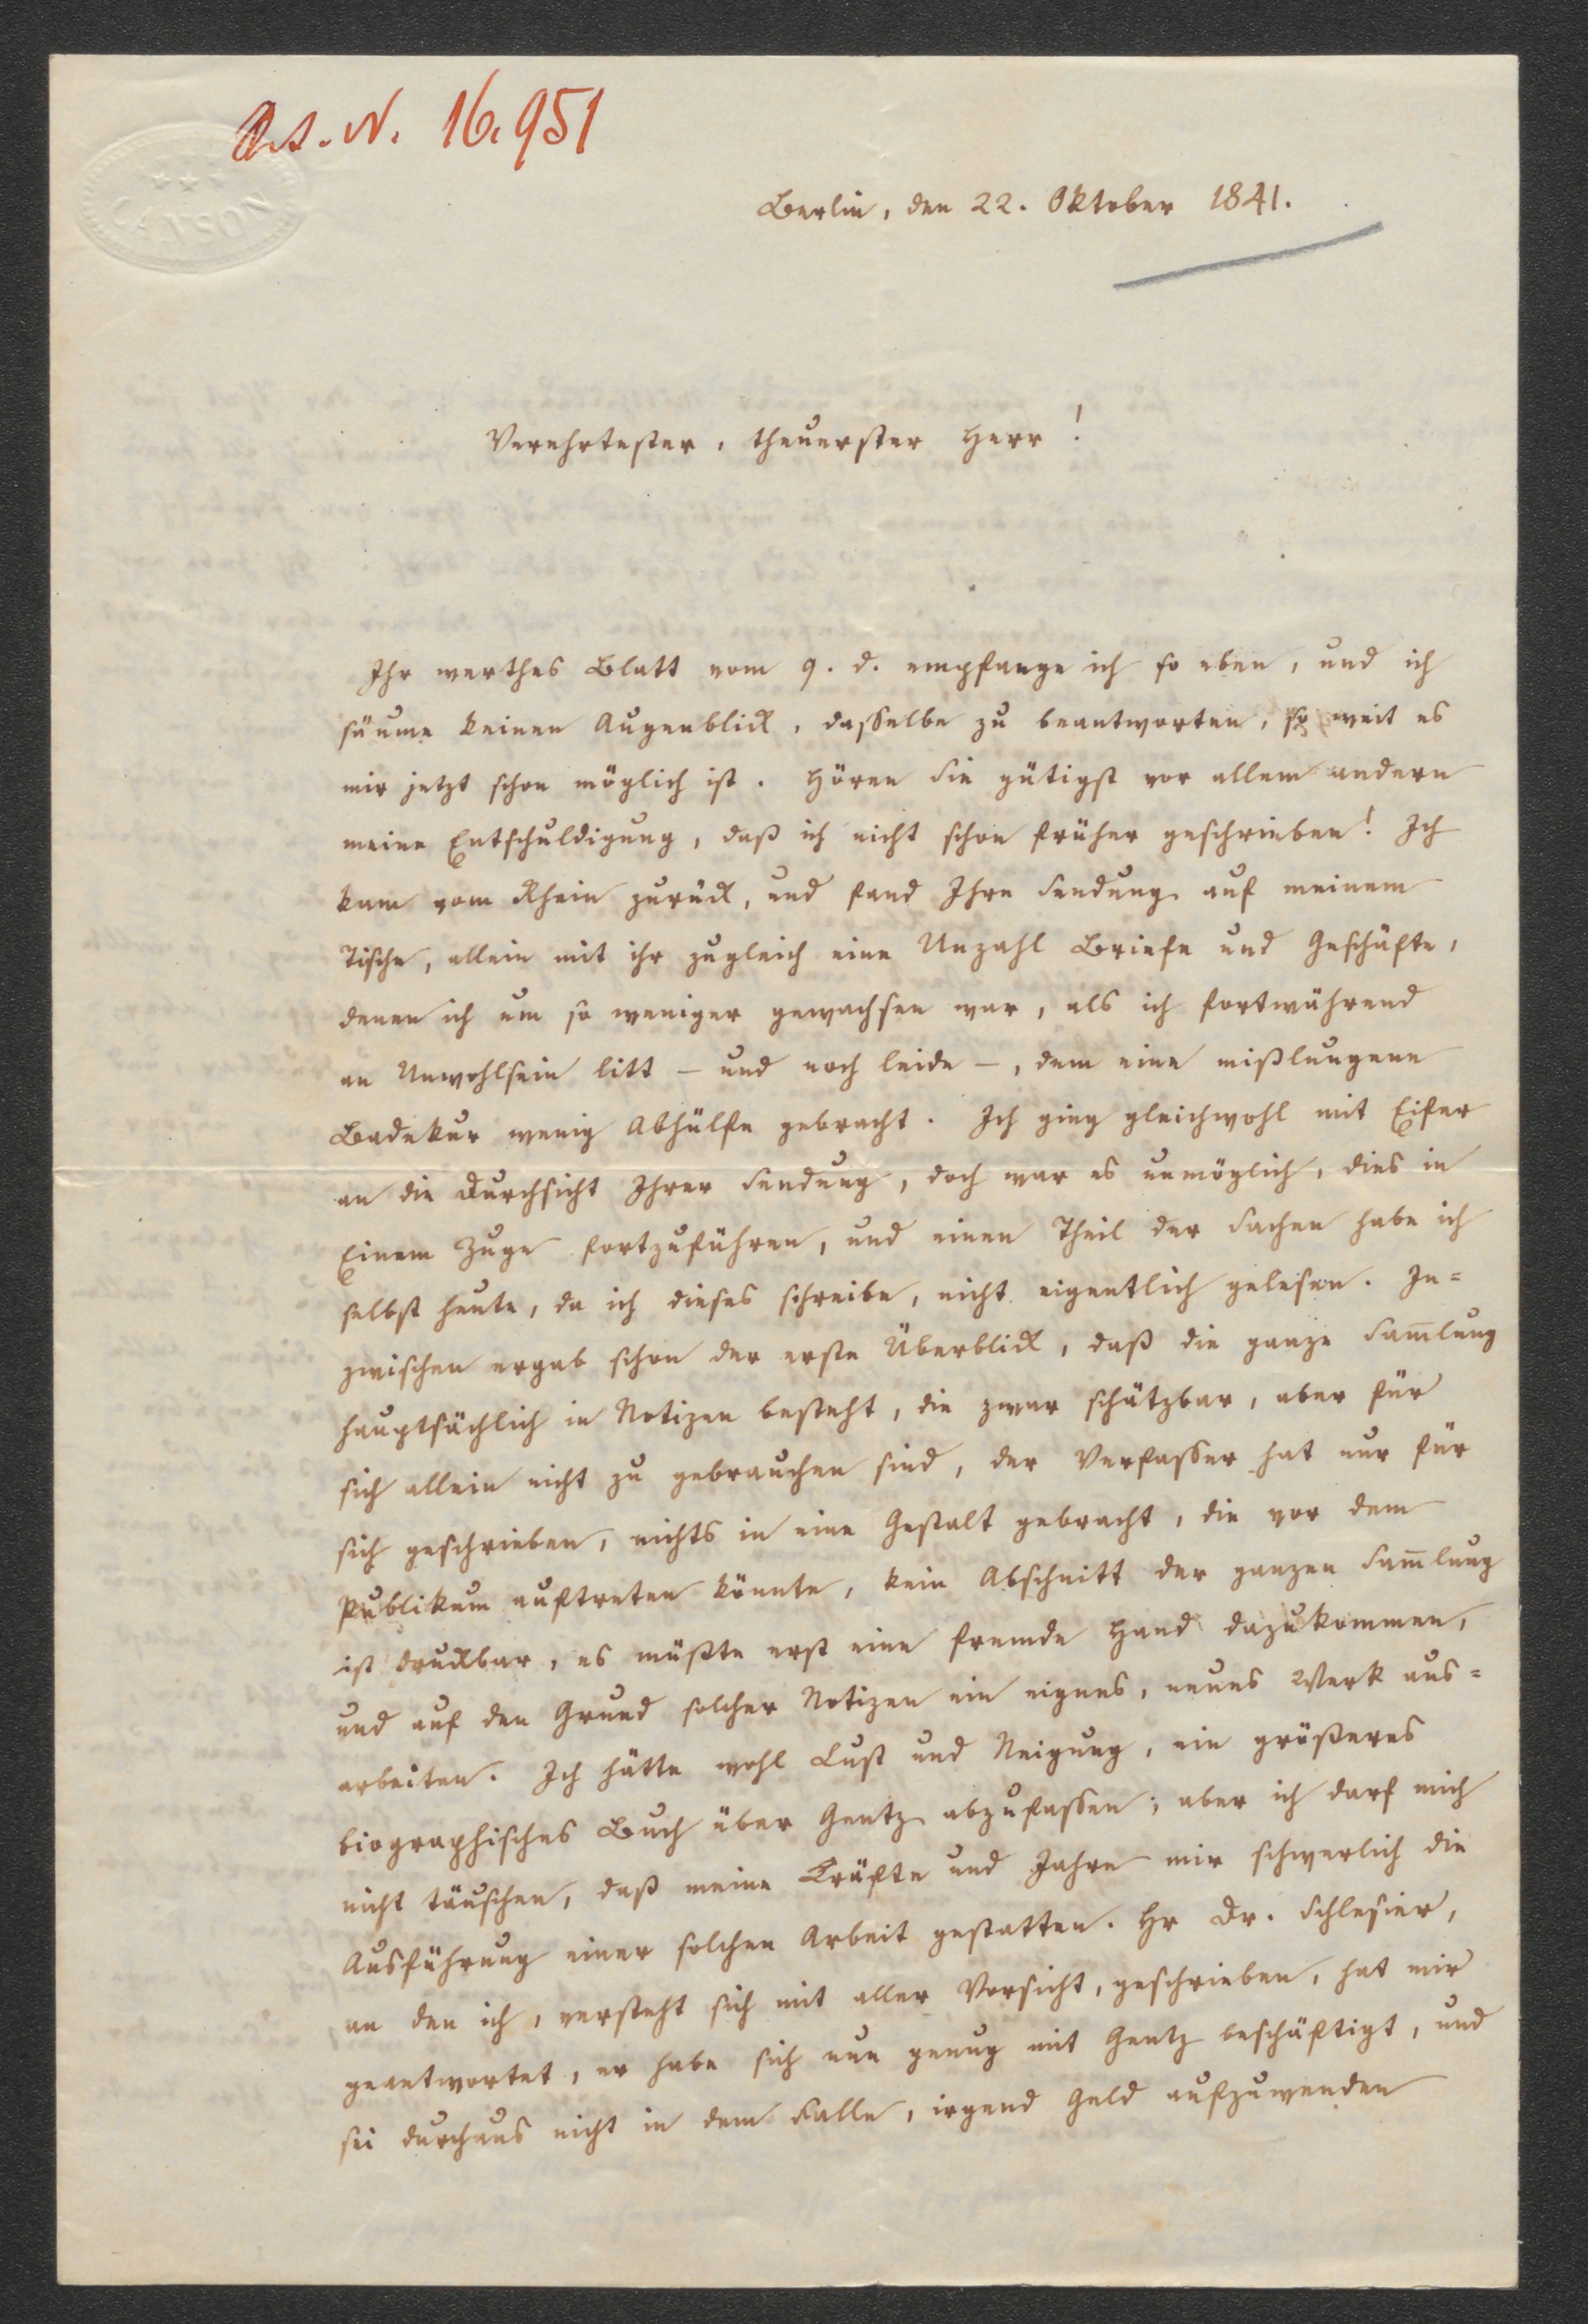 A.N. 16.951
Berlin, den 22. Oktober 1841.
Verehrtester, theuerster Herr!
Ihr werthes Blatt vom 9. d. empfange ich so eben, und ich
säume keinen Augenblick, dasselbe zu beantworten, so weit es
mir jetzt schon möglich ist. Hören Sie gütigst vor allem andern
meine Entschuldigung, daß ich nicht schon früher geschrieben! Ich
kam vom Rhein zurück, und fand Ihre Sendung auf meinem
Tische, allein mit ihr zugleich eine Unzahl Briefe und Geschäfte,
denen ich um so weniger gewachsen war, als ich fortwährend
an Unwohlsein litt – und noch leide –, dem eine mißlungene
Badekur wenig Abhülfe gebracht. Ich ging gleichwohl mit Eifer
an die Durchsicht Ihrer Sendung, doch war es unmöglich, dies in
Einem Zuge fortzuführen, und einen Theil der Sachen habe ich
selbst heute, da ich dieses schreibe, nicht eigentlich gelesen. In=
zwischen ergab schon der erste Überblick, daß die ganze Sam̅lung
hauptsächlich in Notizen besteht, die zwar schätzbar, aber für
sich allein nicht zu gebrauchen sind, der Verfasser hat nur für
sich geschrieben, nichts in eine Gestalt gebracht, die vor dem
Publikum auftreten könnte, kein Abschnitt der ganzen Sam̅lung
ist druckbar, es müßte erst eine fremde Hand dazukommen,
und auf den Grund solcher Notizen ein eignes, neues Werk aus=
arbeiten. Ich hätte wohl Lust und Neigung, ein größeres
biographisches Buch über Gentz abzufassen; aber ich darf mich
nicht täuschen, daß meine Kräfte und Jahre mir schwerlich die
Ausführung einer solchen Arbeit gestatten. Hr Dr. Schlesier,
an den ich, versteht sich mit aller Vorsicht, geschrieben, hat mir
geantwortet, er habe sich nun genug mit Gentz beschäftigt, und
sei durchaus nicht in dem Falle, irgend Geld aufzuwenden